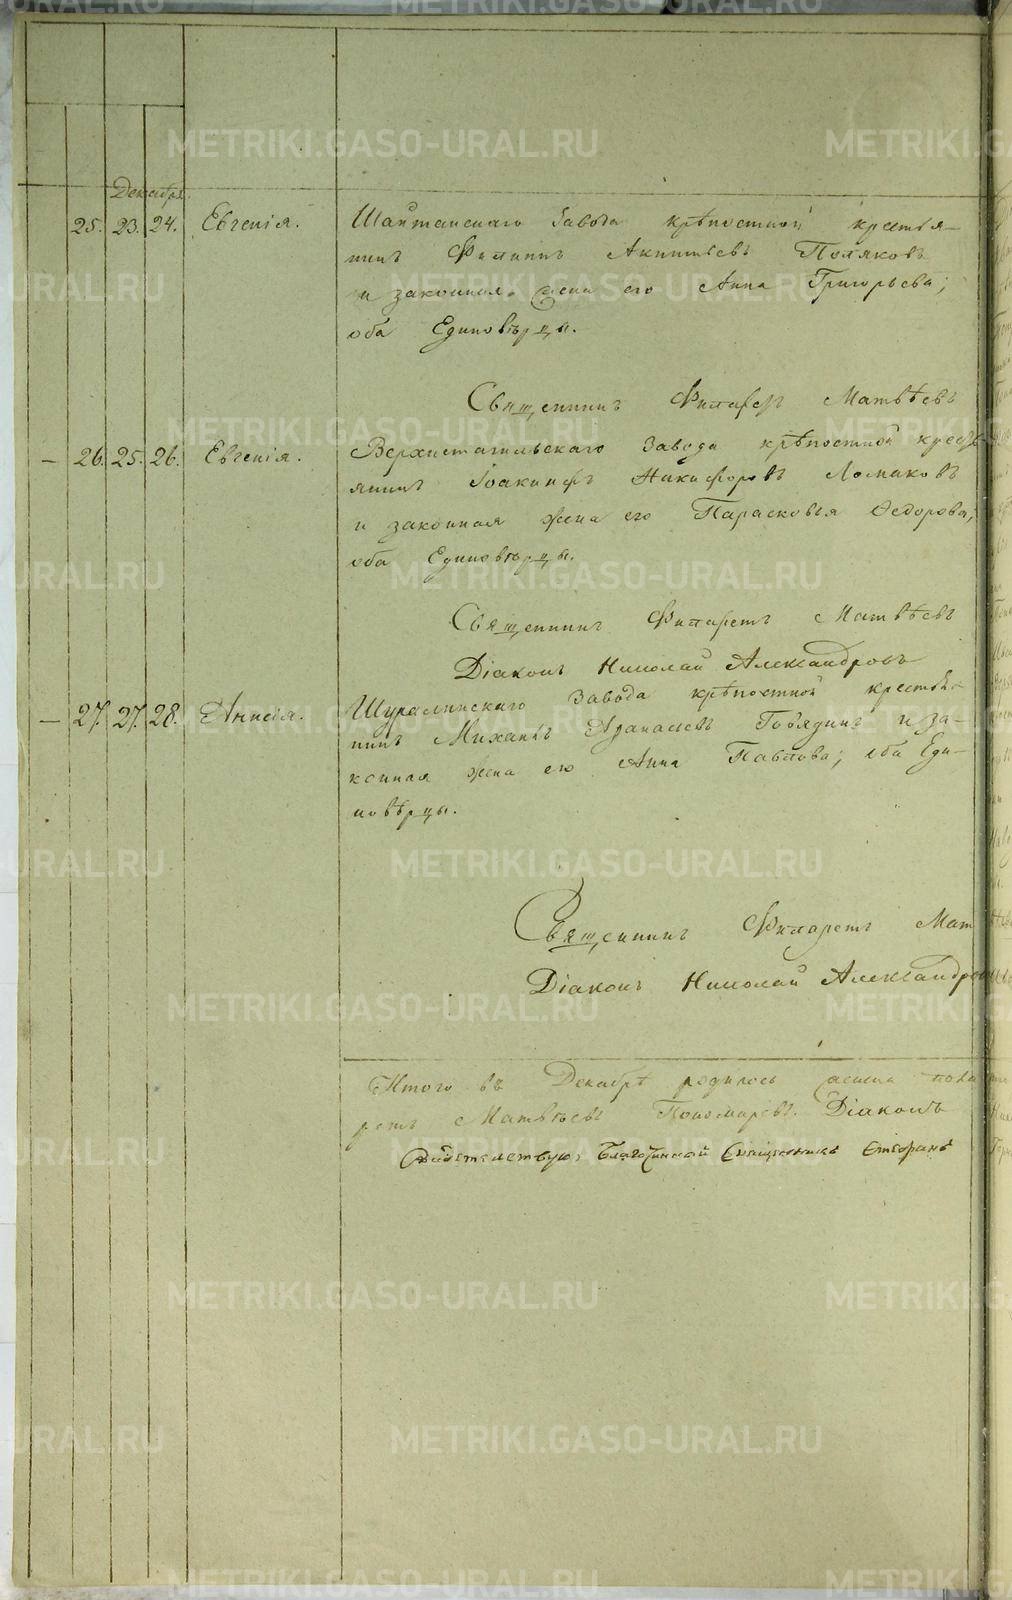 Декабря
25. 23. 24. Евгенія. Шайтанскаго Завода крѣпостной крестья-
нинъ Филиппъ Акинтьевъ Поляковъ
и законная жена его Анна Григорьева;
оба Единовѣрцы.
Священникъ Филаретъ Матвѣевъ
— 26. 25. 26. Евгенія. Верхнетагильскаго Завода крѣпостной крест-
янинъ Іоакинфъ Никифоровъ Ломаковъ
и законная жена его Парасковья Ѳедорова;
оба Единовѣрцы.
Священникъ Филаретъ Матвѣевъ
Діаконъ Николай Александровъ
— 27. 27. 28. Анисія. Шуралинскаго Завода крѣпостной крестья-
нинъ Михаилъ Аѳанасьевъ Говядинъ и за-
конная жена его Анна Павлова; оба Еди-
новѣрцы.
Священникъ Филаретъ Мат
Діаконъ Николай Александров
Итого въ Декабрѣ родилось
ретъ Матвѣевъ Пономаревъ. Діаконъ
Свидетелствую, Благочинной Священникъ Стефанъ
METRIKI.GASO-URAL.RU